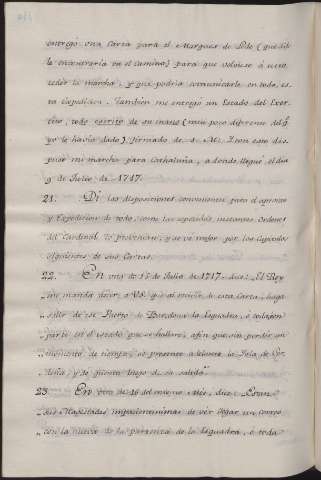 entregó una Carta para el Marques de Lede (que dijo
la encontraría en el camino) para que volviese á suce-
der la marcha, y que podria comunicarle en todo, es-
ta Expedicion. Tambien me entregó un Estado del Exer-
cito, todo escrito de su mano (muy poco diferente del q.
yo le havia dado) firmado de S. M. Z con esto dis-
puse mi marcha para Cathaluña, a donde llegué el dia
9 de Julio de 1717.
21. Di las disposiciones convenientes para el apronto
y Expedicion de todo, como las repetidas instantes Ordenes
del Cardinal lo prevenian, y se ve mejor por los Capitulos
siguientes de sus Cartas.
22. En una de 15 de Julio de 1717. dice: El Rey
me manda decir á VS. que al recibo de esta Carta, haga
salir de ese Puerto de Barcelona la Esquadra, ó la
parte en el estado que se hallare, afin que sin perder un
momento de tiempo, se presente delante la Isla de Cer-
deña, y dé quenta luego de su salida.
23. En otra de 26 del mismo Mes, dice: Estan
sus Magestades impacientissimas de ver llegar un Correo
con la nueva de la partenza de la Esquadra, ó toda